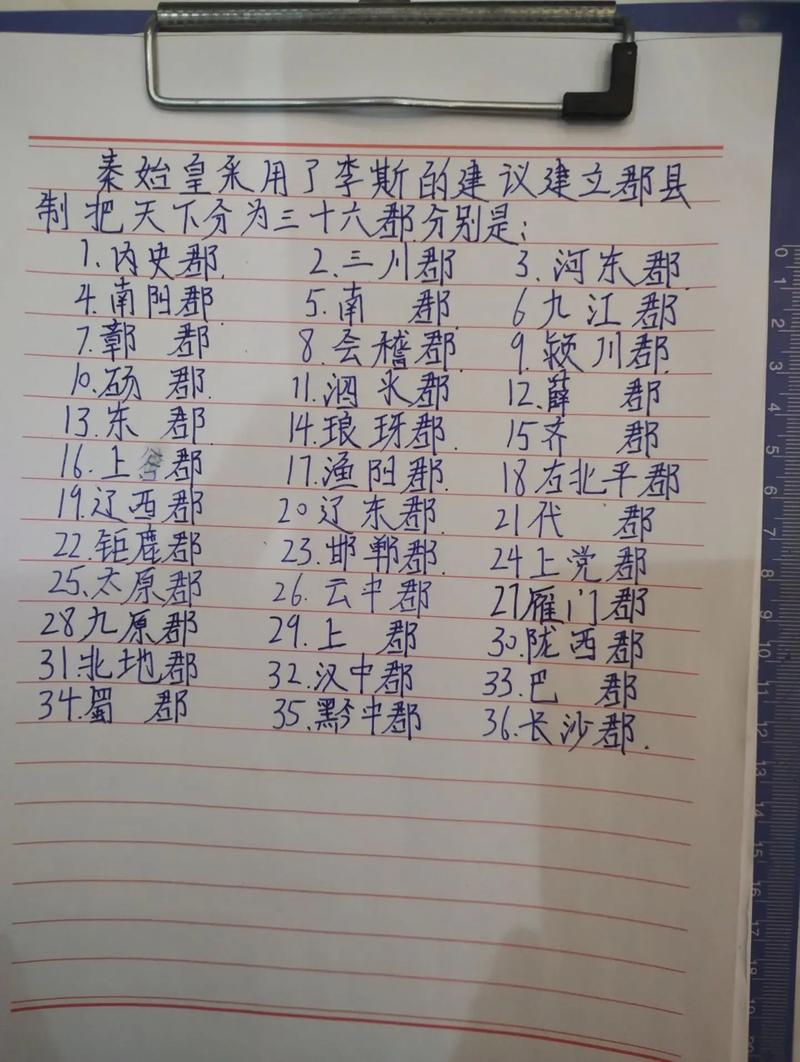 秦始皇采用了李斯的建议建立郡县
制把天下分为三十六郡.分别是:
1.内史郡. 2.三川郡 3.河东郡.
4.南阳郡. 5.南 郡. 6九江郡
7.鄣 郡 8.会稽郡. 9.颍川郡.
10.砀 郡. 11.泗水郡 12.薛 郡
13.东 郡. 14.琅玡郡. 15齐 郡
16.上谷郡 17.渔阳郡. 18右北平郡
19.辽西郡 20辽东郡. 21代 郡
22.钜鹿郡 23.邯郸郡. 24上党郡
25.太原郡 26.云中郡 27雁门郡
28九原郡 29.上 郡 30.陇西郡
31.北地郡 32.汉中郡 33.巴 郡
34.蜀 郡 35.黔中郡 36.长沙郡.
0 1 2 3 4 5 6 7 8 9 10 11 12 13 14 15 16 17 18 19 20